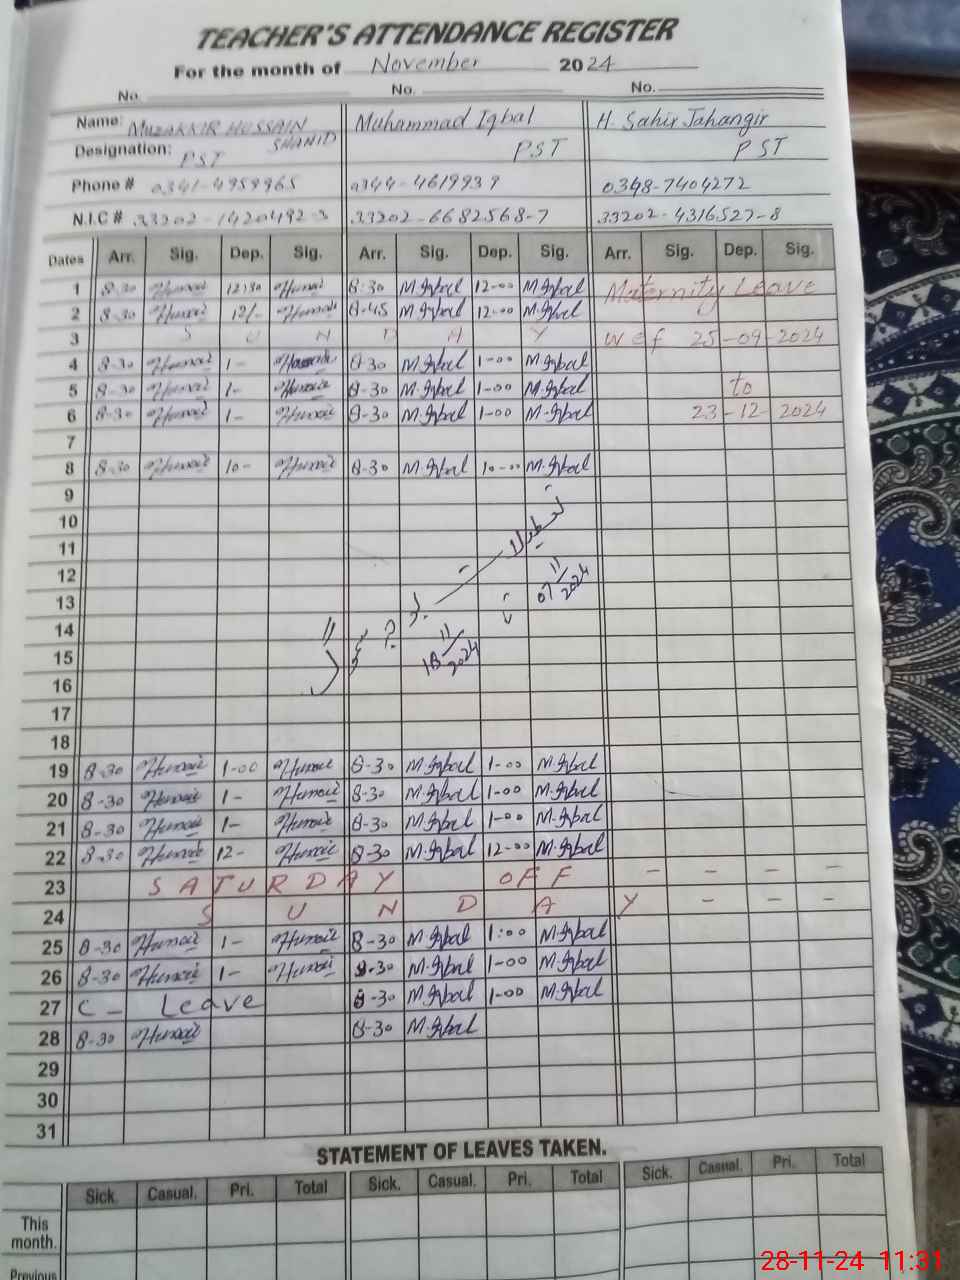 TEACHER'S ATTENDANCE REGISTER
For the month of November 2024
No. No. No.
Name: MUZAKKIR HUSSAIN SHAHID Muhammad Iqbal H. Sahir Jahangir
Designation: PST PST PST
Phone # 0341-4959965 0344-4619939 0348-7404272
N.I.C # 33202-1420492-3 33202-6682568-7 33202-4316527-8
Dates Arr. Sig. Dep. Sig. Arr. Sig. Dep. Sig. Arr. Sig. Dep. Sig.
1 8-30 12:30 8-30 M.Iqbal 12-00 M.Iqbal Maternity Leave
2 8-30 12/- 8-45 M.Iqbal 12-00 M.Iqbal
3 S U N D A Y wef 25-09-2024
4 8-30 1- 8-30 M.Iqbal 1-00 M.Iqbal
5 8-30 1- 8-30 M.Iqbal 1-00 M.Iqbal to
6 8-30 1- 8-30 M.Iqbal 1-00 M.Iqbal 23-12-2024
7
8 8-30 10- 8-30 M.Iqbal 10-00 M.Iqbal
9
10
11
12
13 07/11/2024
14
15 18/11/2024
16
17
18
19 8-30 1-00 8-30 M.Iqbal 1-00 M.Iqbal
20 8-30 1- 8-30 M.Iqbal 1-00 M.Iqbal
21 8-30 1- 8-30 M.Iqbal 1-00 M.Iqbal
22 8-30 12- 8-30 M.Iqbal 12-00 M.Iqbal
23 SATURDAY OFF - - - -
24 S U N D A Y - - -
25 8-30 1- 8-30 M.Iqbal 1:00 M.Iqbal
26 8-30 1- 8-30 M.Iqbal 1-00 M.Iqbal
27 C- Leave 8-30 M.Iqbal 1-00 M.Iqbal
28 8-30 8-30 M.Iqbal
29
30
31
STATEMENT OF LEAVES TAKEN.
Sick. Casual. Pri. Total Sick. Casual. Pri. Total Sick. Casual. Pri. Total
This month.
Previous
28-11-24 11:31